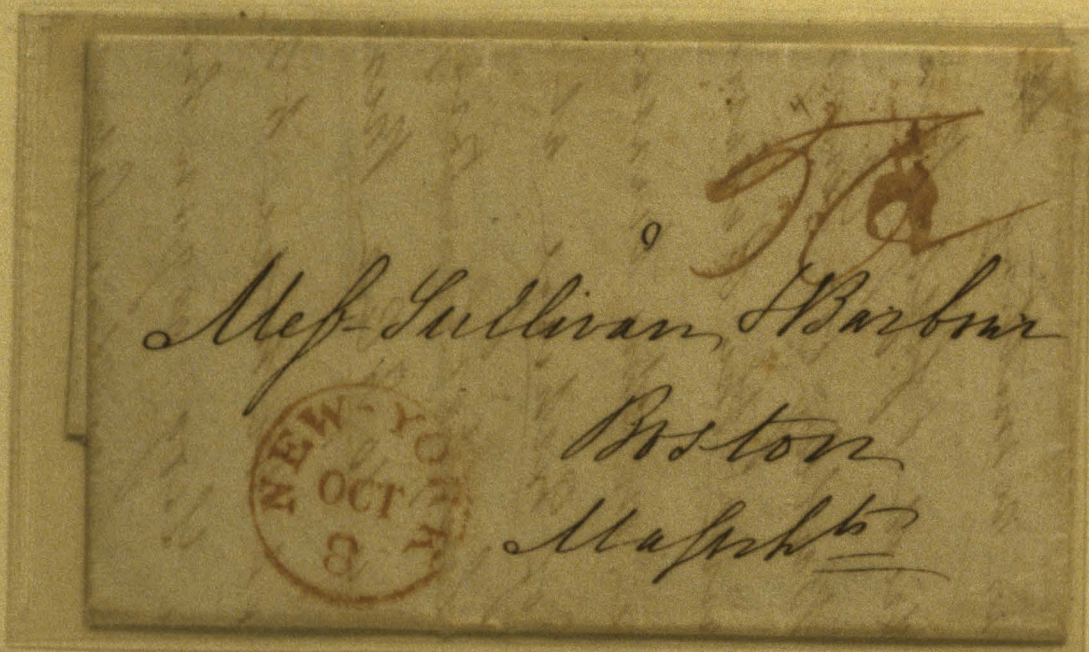 Mess Sullivan & Barbour
Boston
Massachts
NEW-YORK
OCT
8